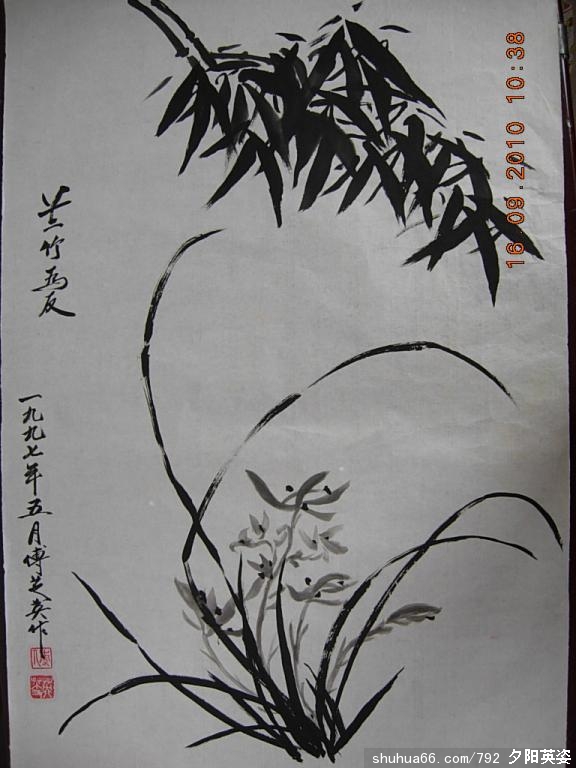 兰竹为友
一九九七年五月傅芝英作
16.09.2010 10:38
shuhua66.com/792 夕阳英姿